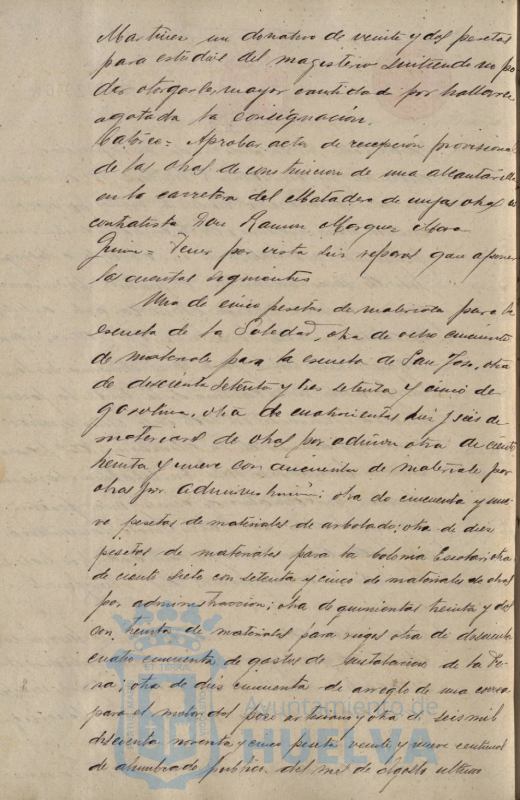 Martinez un donativo de veinte y dos pesetas
para estudios del magisterio sintiendo no po-
der otorgarle mayor cantidad por hallarse
agotada la consignación.
Catorce = Aprobar acta de recepción provisional
de las obras de construccion de una alcantarilla
en la carretera del Matadero de cuyas obras es
contratista Don Ramon Marquez
= Tener por vista sin reparos que oponer
las cuentas siguientes
Una de cinco pesetas de materiales para la
escuela de la Soledad, otra de ocho cincuenta
de materiale para la escuela de San Jose, otra
de doscienta setenta y tres setenta y cinco de
gasolina, otra de cuatrocientas seis
de obras por otra de ciento
treinta y nueve con cincuenta de materiale por
obras por administracion; otra de cincuenta y nue-
ve pesetas de materiales de arbolado; otra de diez
pesetas de materiales para la Colonia Escolar; otra
de ciento siete con setenta y cinco de materiales de obras
por administraccion; otra de quinientas treinta y dos
con treinta de materiales para riegos otra de doscienta
cuatro cincuenta de gastos de instalacion de la Fe-
ria; otra de dos cincuenta de arreglo de una correa
para el motor del pozo artesiano y otra de seis mil
doscienta noventa y cinco peseta veinte y nueve centimos
de alumbrado publico del mes de Agosto ultimo
Ayuntamiento de
HUELVA